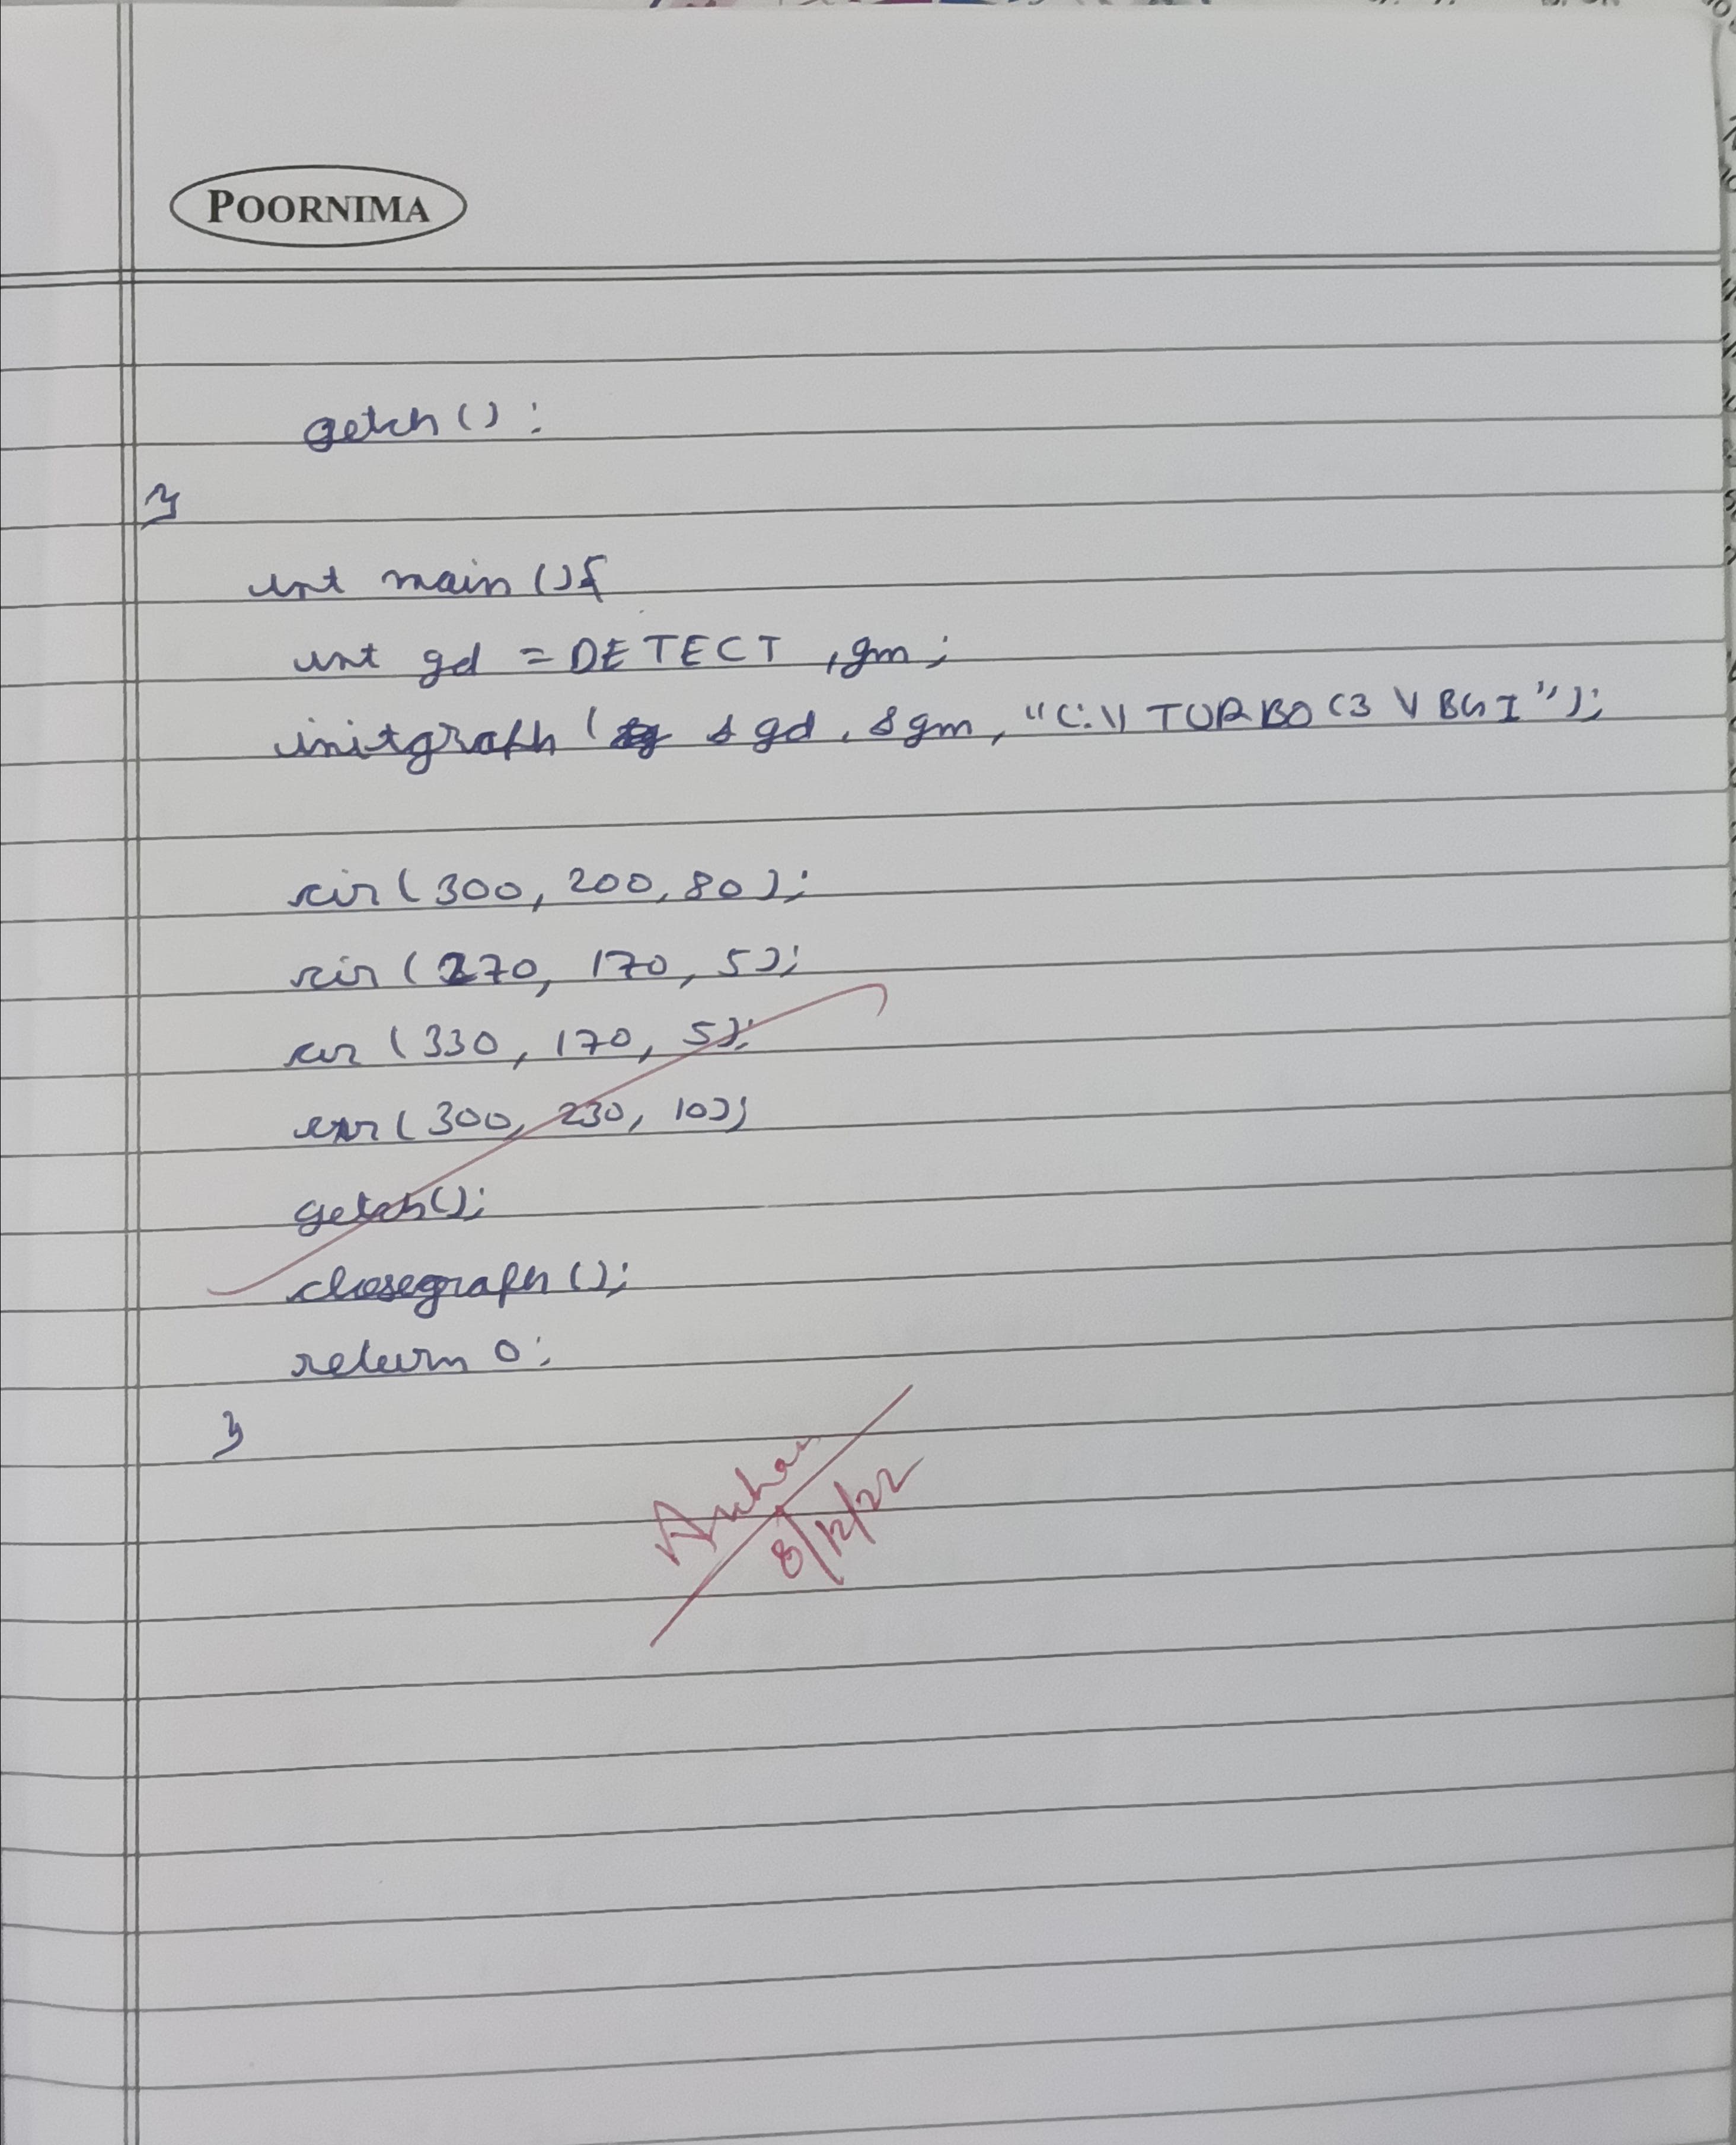 POORNIMA
getch();
}
int main(){
int gd = DETECT, gm;
initgraph( &gd, &gm, "C:\\TURBOC3\\BGI");
cir(300, 200, 80);
cir(270, 170, 5);
cir(330, 170, 5);
cir(300, 230, 10);
getch();
closegraph();
return 0;
}
8/12/22